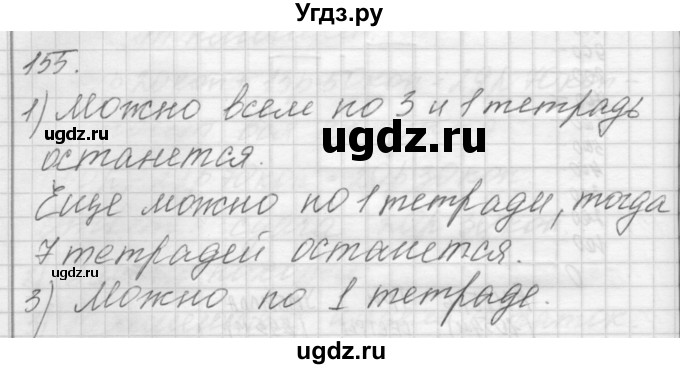 Угдз.ру
155.
1) Можно всем по 3 и 1 тетрадь
ugdz.ru
ugdz.ru
останется.
Еще можно по 1 тетради, тогда
7 тетрадей останется.
ugdz.ru
3) Можно по 1 тетраде.
ugdz.ru
ugdz.ru